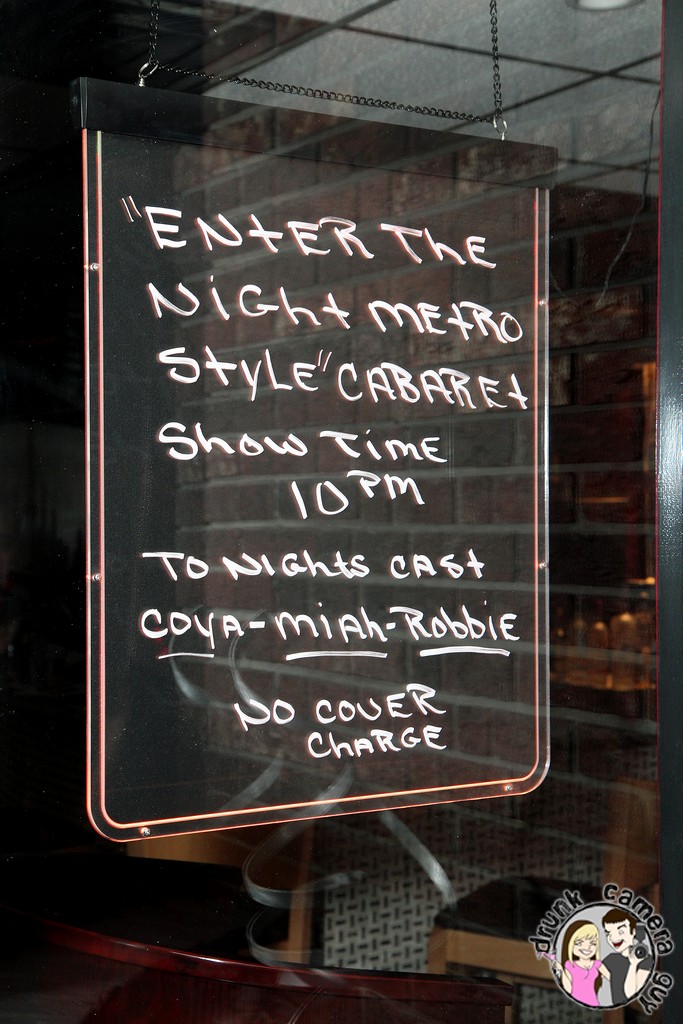 "ENTER THE
NiGht METRO
StYLE" CABAREt
Show Time
10 PM
TO NiGhts CASt
COYA-MiAh-Robbie
NO COVER
ChARGE
drunk camera guy